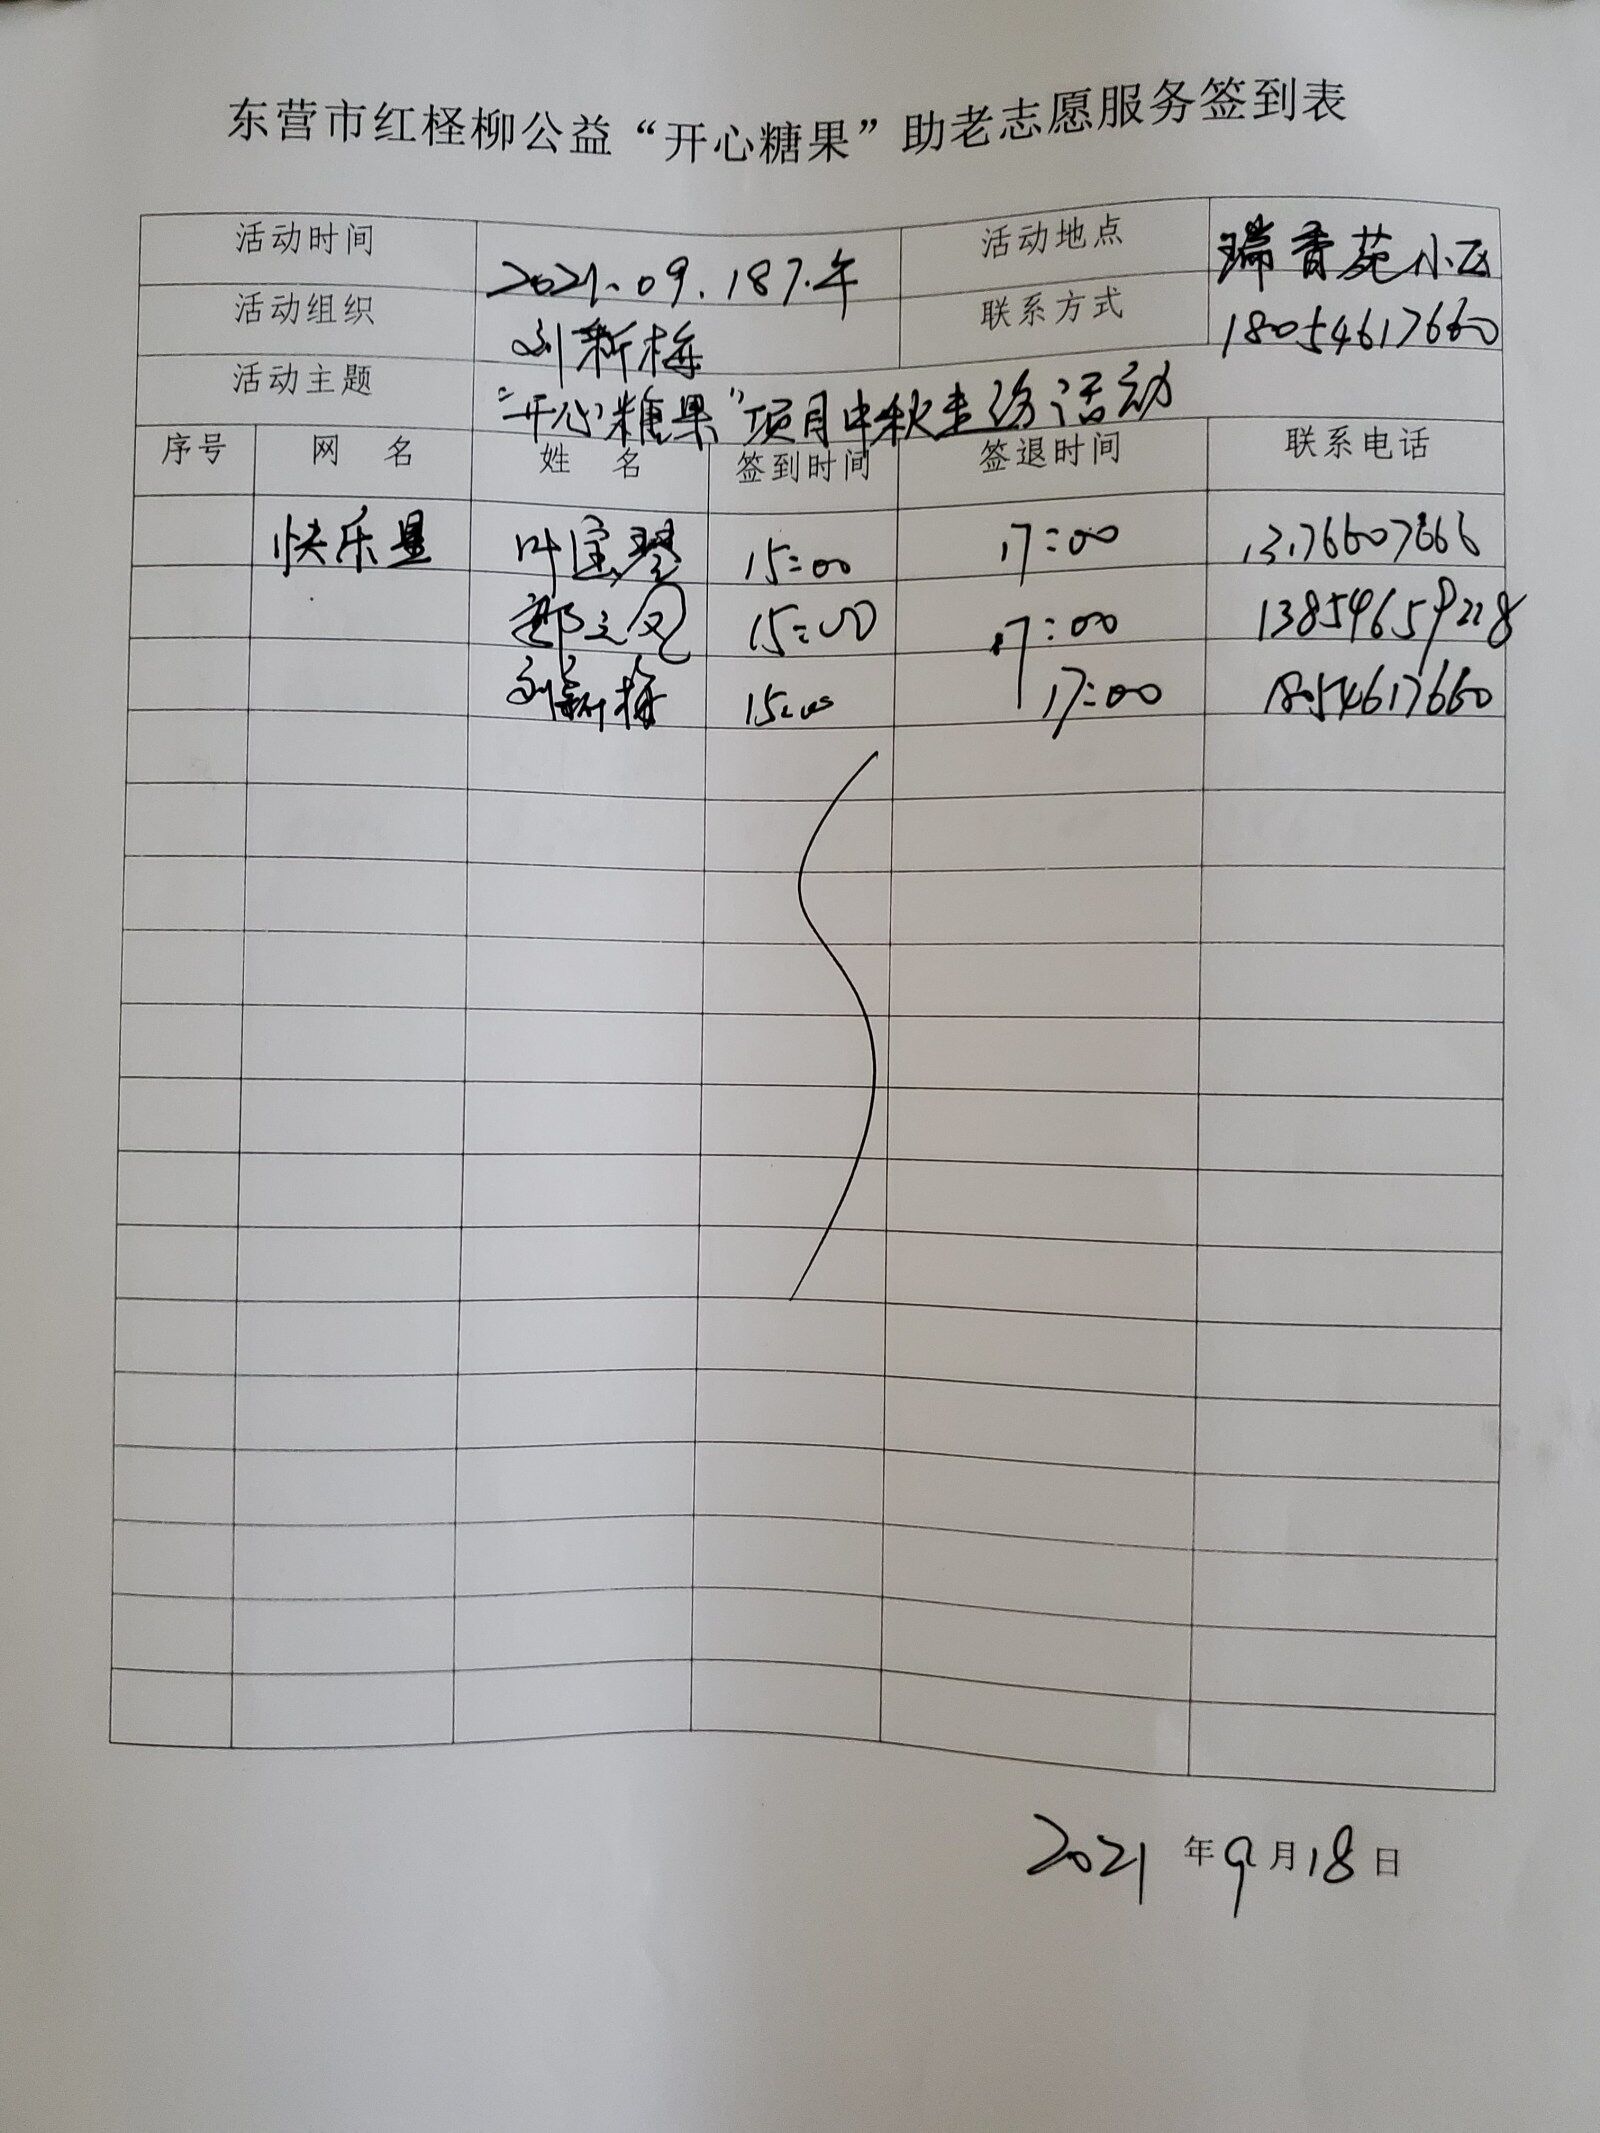 东营市红柽柳公益“开心糖果”助老志愿服务签到表
活动时间 2021.09.18下午 活动地点 瑞香苑小区
活动组织 刘新梅 联系方式 18054617660
活动主题 “开心糖果”项目中秋走访活动
序号 网 名 姓 名 签到时间 签退时间 联系电话
快乐星 叶宝琴 15:00 17:00 13176607666
15:00 17:00 13854659228
刘新梅 15:00 17:00 18054617660
2021 年 9 月 18 日